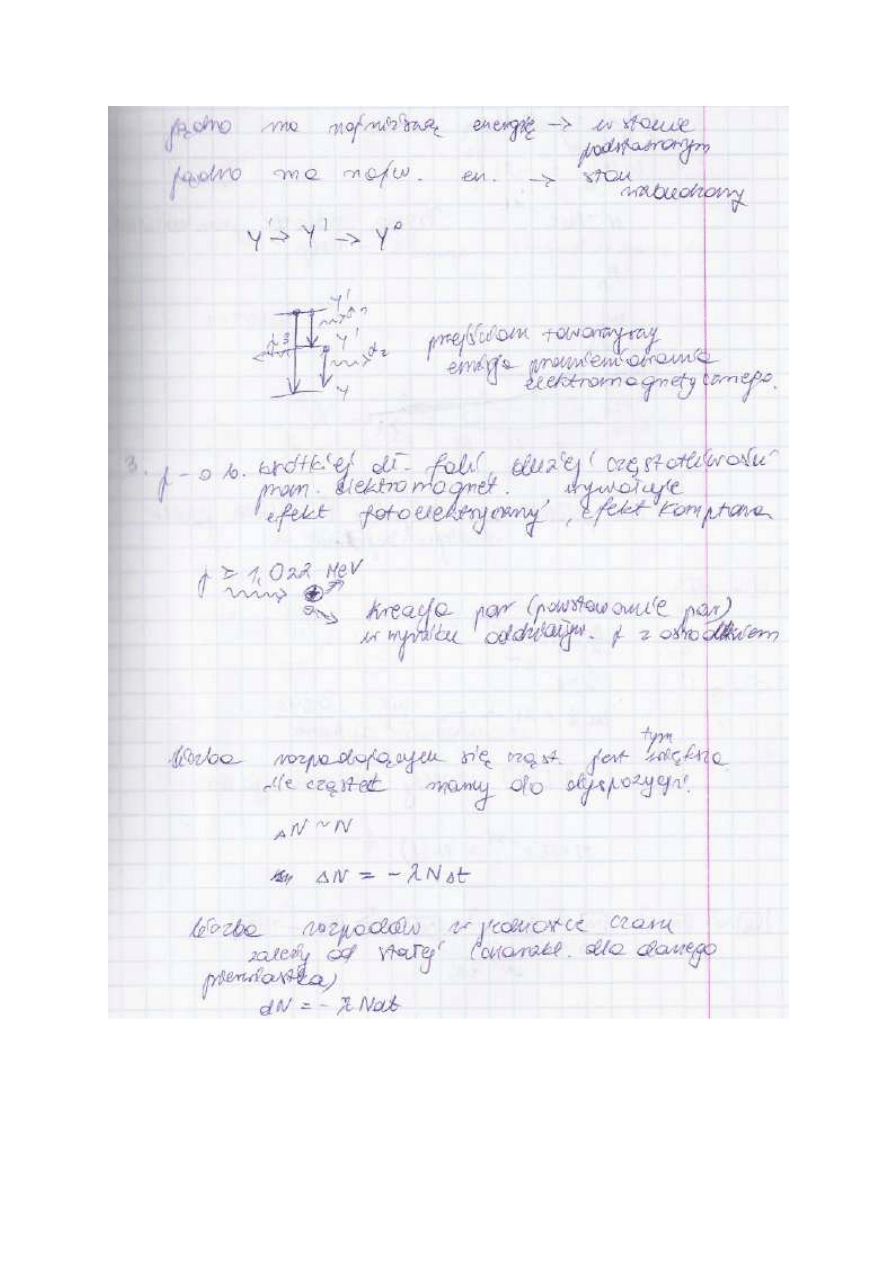 jądro ma najniższą energię → w stanie
podstawowym
jądro ma najw. en. → stan
wzbudzony
Y' → Y' → Y⁰
Y'
γ3 Y' γ2
Y
przejściom towarzyszy
emisja promieniowania
elektromagnetycznego.
3. γ - o b. krótkiej dł. fali, dużej częstotliwości
prom. elektromagnet. wywołuje
efekt fotoelektryczny, efekt Komptona
γ ≥ 1,022 MeV
kreacja par (powstawanie par)
w wyniku oddziaływ. γ z ośrodkiem
tym
liczba rozpadających się cząst. jest większa
ile cząstek mamy do dyspozycji.
ΔN ~ N
ΔN = - λNΔt
liczba rozpadów w jednostce czasu
zależy od stałej (charakt. dla danego
pierwiastka)
dN = - λNdt